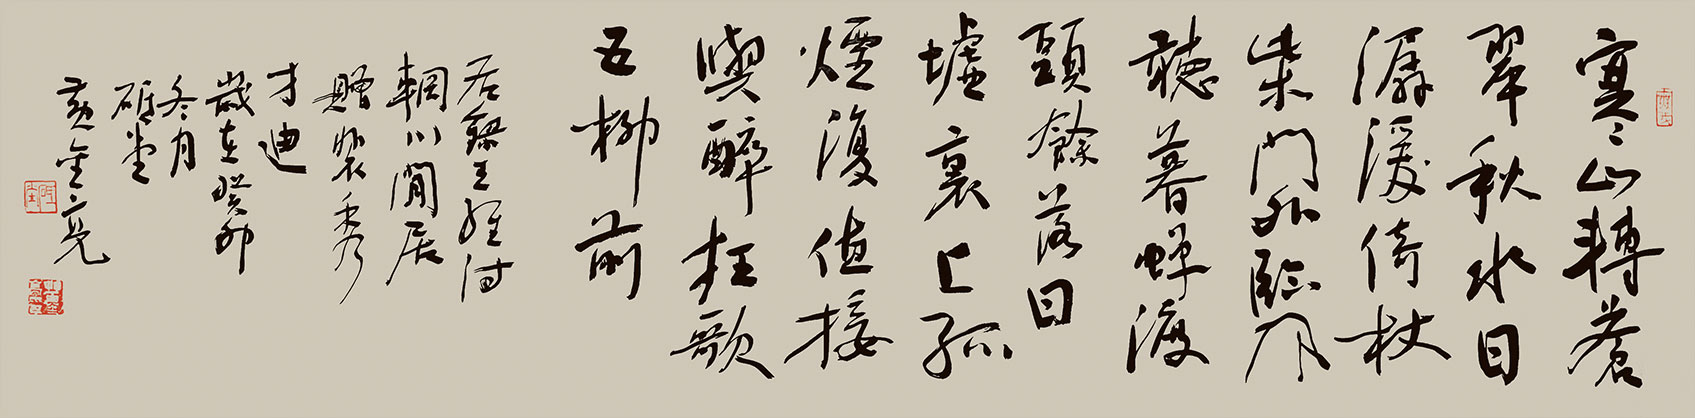 寒山轉蒼
翠秋水日
潺湲倚杖
柴門外臨風
聽暮蟬渡
頭餘落日
墟裏上孤
煙復值接
輿醉狂歌
五柳前
右錄王維詩
輞川閒居
贈裴秀
才迪
歲在癸卯
冬月
砥堂
黃金亮